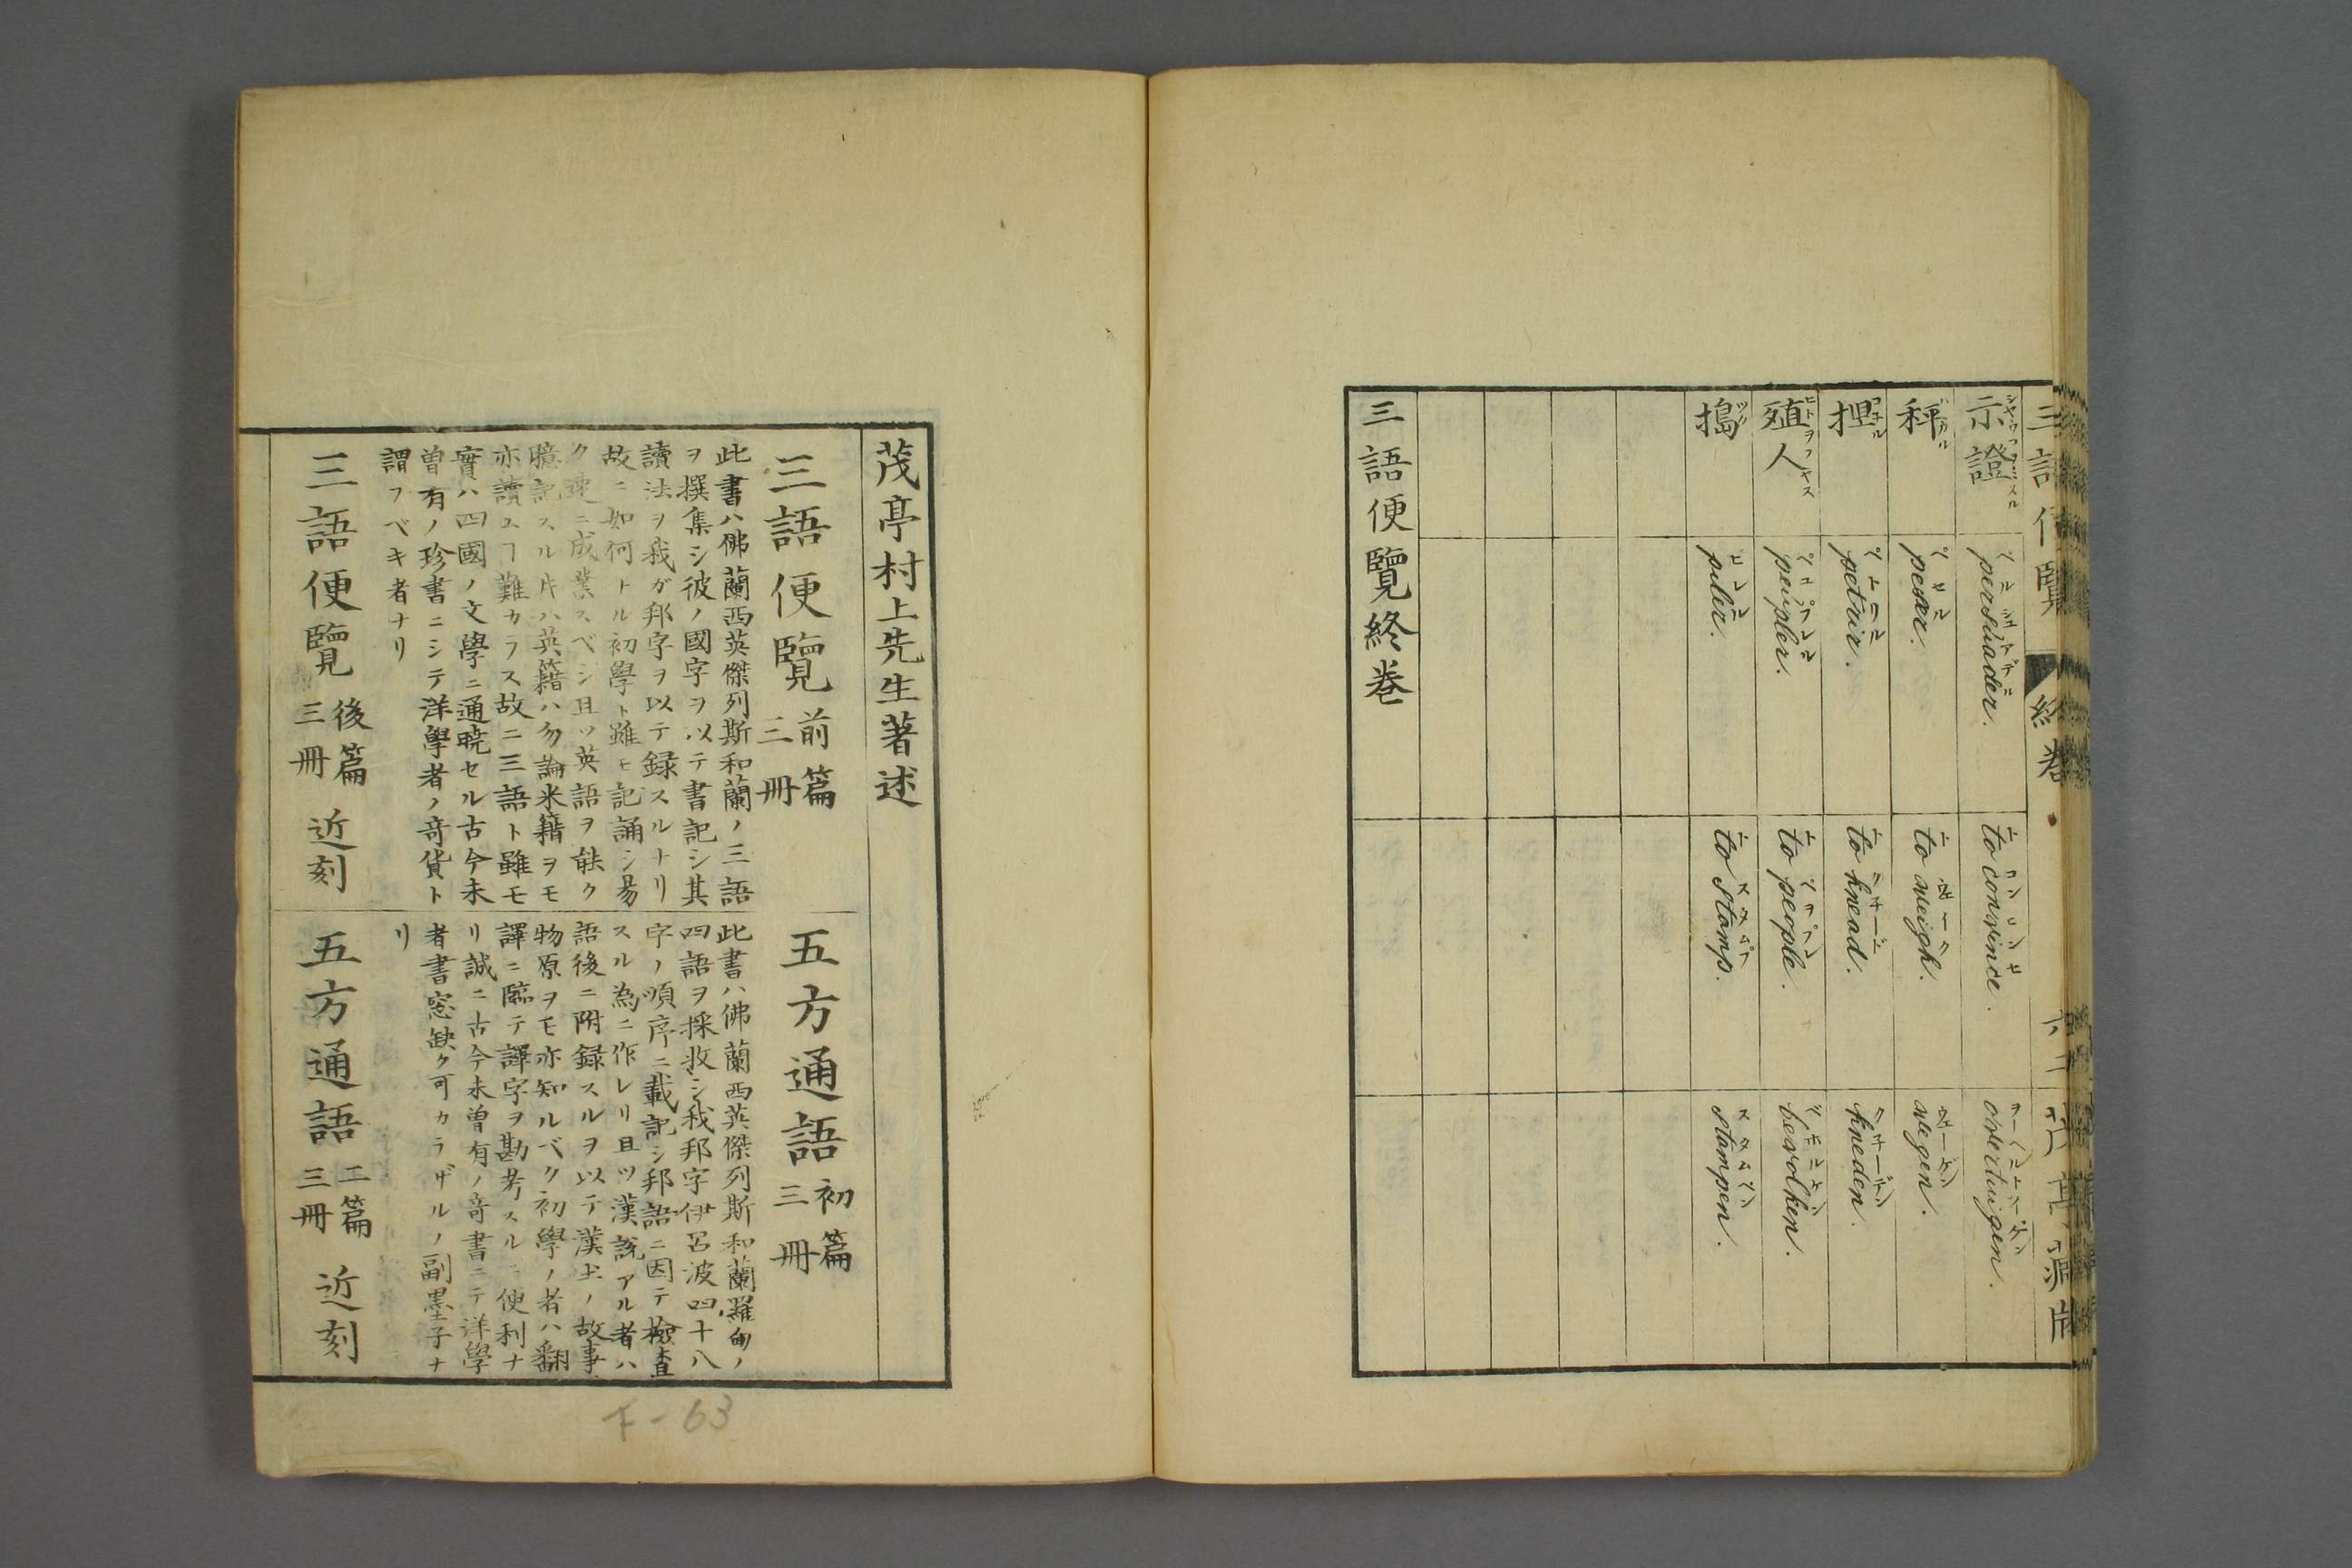 三語便覽 終巻
示證 シヤウコヲシメスル
persuader.
to convince.
overtuigen.
秤 ハカル
peser.
to weigh.
wegen.
捏 コネル
petrir.
to knead.
kneden.
殖人 ヒトヲフヤス
peupler.
to people.
bevolken.
搗 ツク
piler.
to stamp.
stampen.
三語便覽終巻
茂亭村上先生著述
三語便覽 前篇 三冊
此書ハ佛蘭西英傑列斯和蘭ノ三語
ヲ撰集シ彼ノ國字ヲ以テ書記シ其
讀法ヲ我ガ邦字ヲ以テ録スルナリ
故ニ如何トル初學ト雖モ記誦シ易
ク速ニ成業スベシ且ツ英語ヲ能ク
臆記スル片ハ英籍ハ勿論米籍ヲモ
亦讀ユヿ難カラス故ニ三語ト雖モ
實ハ四國ノ文學ニ通暁セル古今未
曽有ノ珍書ニシテ洋學者ノ竒貨ト
謂フベキ者ナリ
三語便覽 後篇 三冊 近刻
五方通語 初篇 三冊
此書ハ佛蘭西英傑列斯和蘭羅甸ノ
四語ヲ採收シ我邦字伊呂波四十八
字ノ順序ニ載記シ邦語ニ因テ檢査
スル為ニ作レリ且ツ漢説アル者ハ
語後ニ附録スルヲ以テ漢土ノ故事
物原ヲモ亦知ルベク初學ノ者ハ翻
譯ニ臨テ譯字ヲ勘考スルニ便利ナ
リ誠ニ古今未曽有ノ竒書ニテ洋學
者書窓缺ク可カラザルノ副墨子ナ
リ
五方通語 二篇 三冊 近刻
F-63